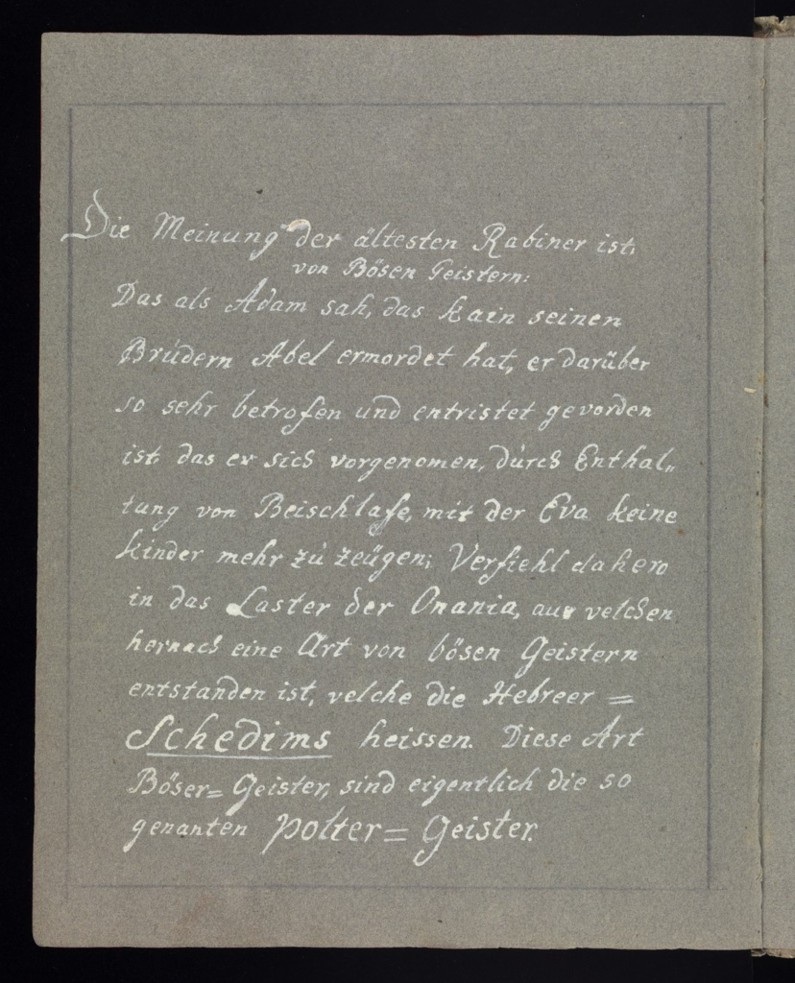 Die Meinung der ältesten Rabiner ist,
von Bösen Geistern:
Das als Adam sah, das Kain seinen
Brúdern Abel ermordet hat, er darüber
so sehr betrofen und entristet gevorden
ist, das er sich vorgenomen, dúrch Enthal„
tung von Beischlafe, mit der Eva keine
Kinder mehr zú zeügen; Verfiehl dahero
in das Laster der Onania, aus velchen
hernach eine Art von bösen Geistern
entstanden ist, velche die Hebreer =
Schedims heissen. Diese Art
Böser= Geister, sind eigentlich die so
genanten Polter= Geister.